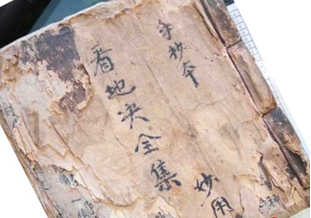 手抄本
看地决全集
妙用